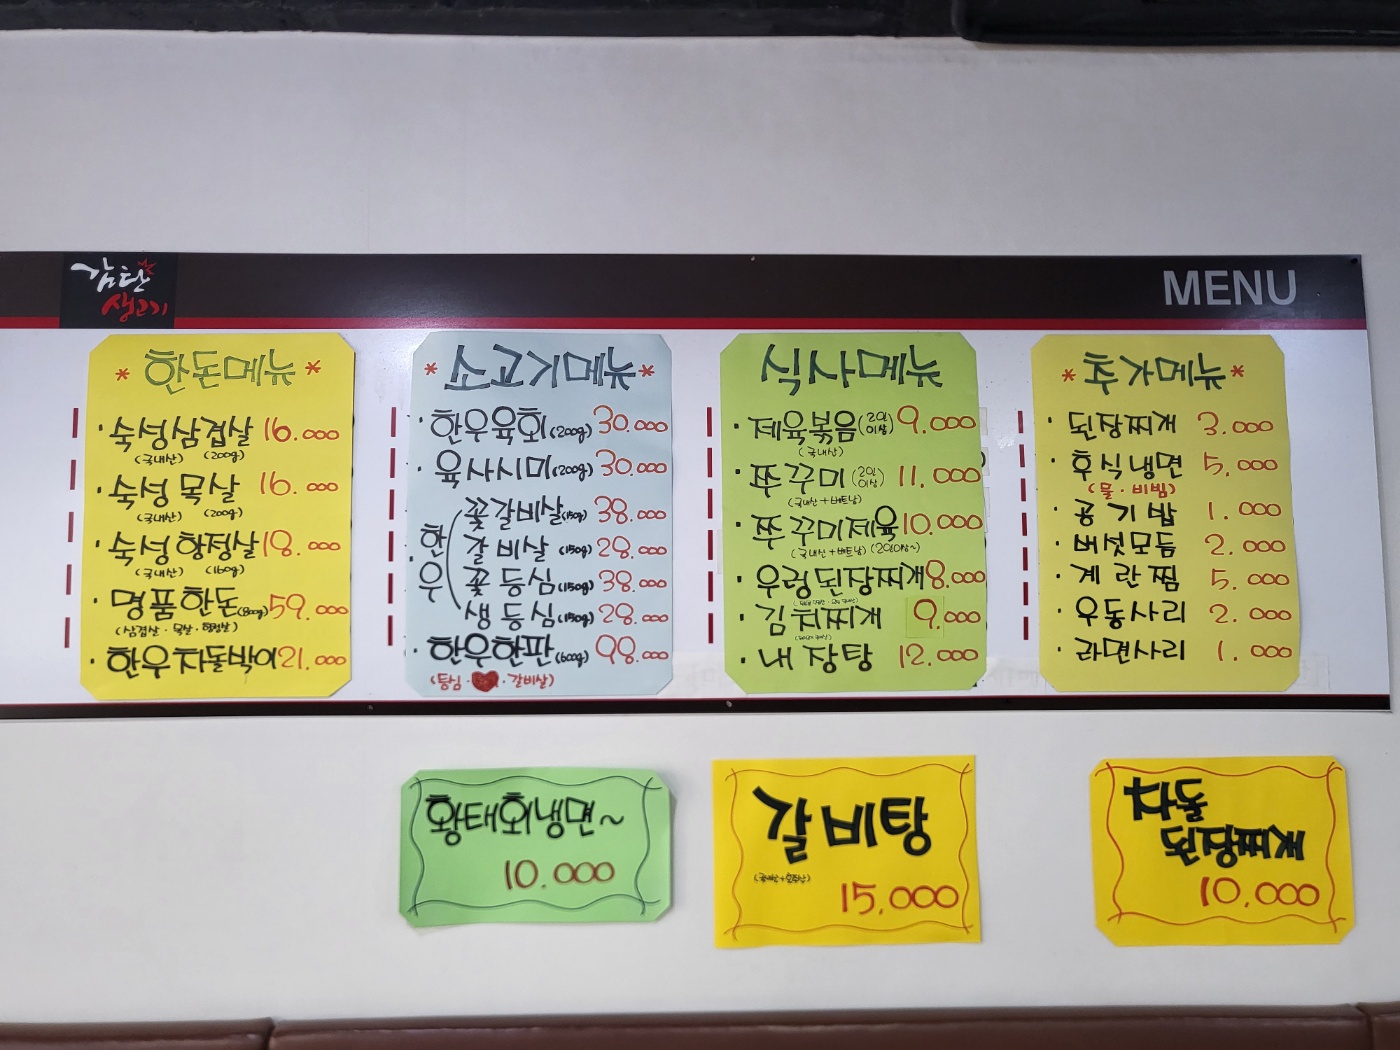 감탄
생고기
MENU
* 한돈메뉴 *
· 숙성삼겹살 16.000
(국내산) (200g)
· 숙성 목살 16.000
(국내산) (200g)
· 숙성 항정살 18.000
(국내산) (160g)
· 명품한돈(800g) 59.000
(삼겹살 · 목살 · 항정살)
· 한우차돌박이 21.000
* 소고기메뉴 *
· 한우육회(200g) 30.000
· 육사시미(200g) 30.000
· 한우
꽃갈비살(150g) 38.000
갈비살 (150g) 28.000
꽃등심(150g) 38.000
생등심(150g) 28.000
· 한우한판(600g) 98.000
(등심 · ♥ · 갈비살)
식사메뉴
· 제육볶음(2인이상) 9.000
(국내산)
· 쭈꾸미(2인이상) 11.000
(국내산+베트남)
· 쭈꾸미제육 10.000
(국내산+베트남) (2인이상~)
· 우렁된장찌개 8.000
· 김치찌개 9.000
· 내장탕 12.000
* 추가메뉴 *
· 된장찌개 3.000
· 후식냉면 5.000
(물 · 비빔)
· 공기밥 1.000
· 버섯모듬 2.000
· 계란찜 5.000
· 우동사리 2.000
· 라면사리 1.000
황태회냉면~
10.000
갈비탕
15.000
차돌
된장찌개
10.000